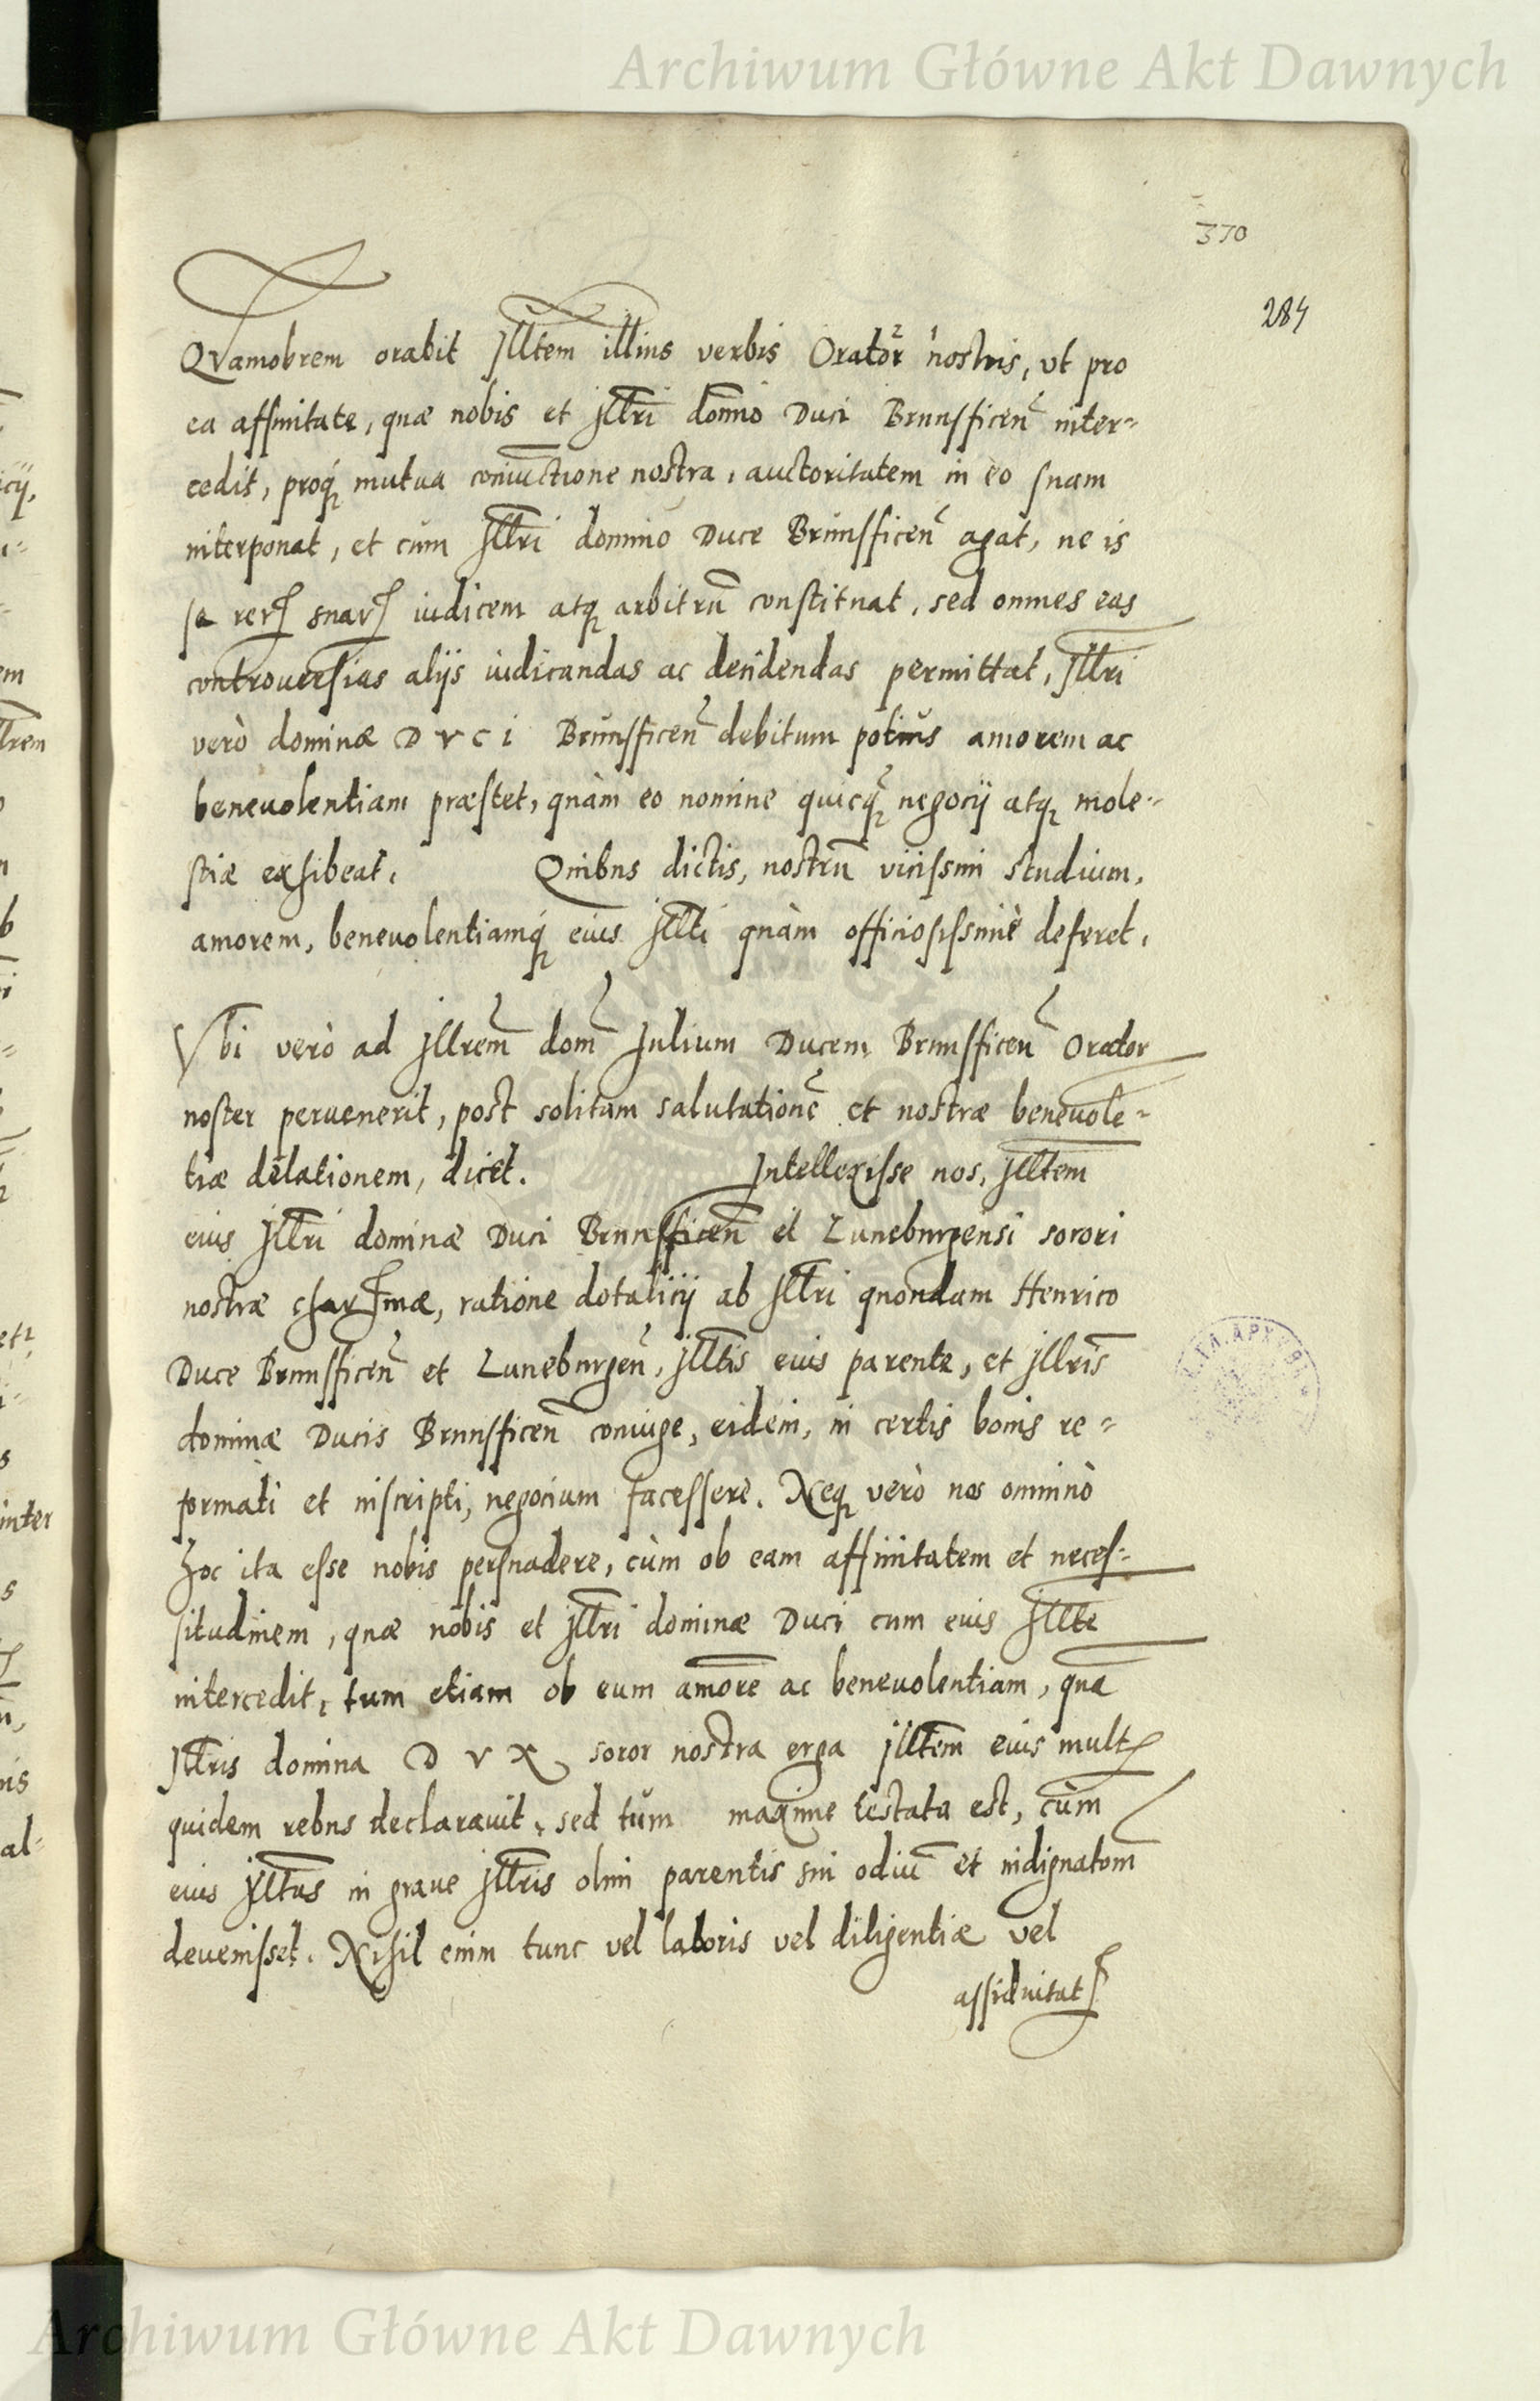 Archiwum Główne Akt Dawnych
370
284
QVamobrem orabit Jlltem illius verbis Orator nostris, vt pro
ea affinitate, quæ nobis et Jllri domino Duci Brunsficen inter=
cedit, proq́ mutua coniunctione nostra, auctoritatem in eo suam
interponat, et cùm Jllri domino Duce Brunsficen agat, ne is
se rerum suarum iudicem atq arbitrū constituat, sed omnes eas
controuersias alijs iudicandas ac decidendas permittat, Jllri
verò dominæ DVCI Brunsficen debitum potius amorem ac
beneuolentiam præstet, quàm eo nomine quicq negocij atq mole=
stiæ exhibeat. Quibus dictis, nostrū vicissim studium,
amorem, beneuolentiamq́ eius Jllti quàm officiosissimè deferet.
Vbi verò ad Jllrem dom Julium Ducem Brunsficen Orator
noster peruenerit, post solitam salutationē et nostræ beneuolē=
tiæ delationem, dicet. Intellexisse nos, Jlltem
eius Jllri dominæ Duci Brunsficen et Luneburgensi sorori
nostræ charissimæ, ratione dotalicij ab Jllri quondam Henrico
Duce Brunsficen et Luneburgen, Jlltis eius parente, et Jllris
dominæ Ducis Brunsficen coniuge, eidem, in certis bonis re=
formati et inscripti, negocium facessere. Neq verò nos omninò
hoc ita esse nobis persuadere, cùm ob eam affinitatem et neces=
situdinem, quæ nobis et Jllri dominæ Duci cum eius Jllte
intercedit, tum etiam ob eum amorē ac beneuolentiam, quā
Jllris domina DVX soror nostra erga Jlltem eius multis
quidem rebus declarauit, sed tùm maxime testata est, cùm
eius Jlltas in graue Jllris olim parentis sui odiū et indignatom
deuenisset. Nihil enim tunc vel laboris vel diligentiæ vel
assiduitatis
Archiwum Główne Akt Dawnych